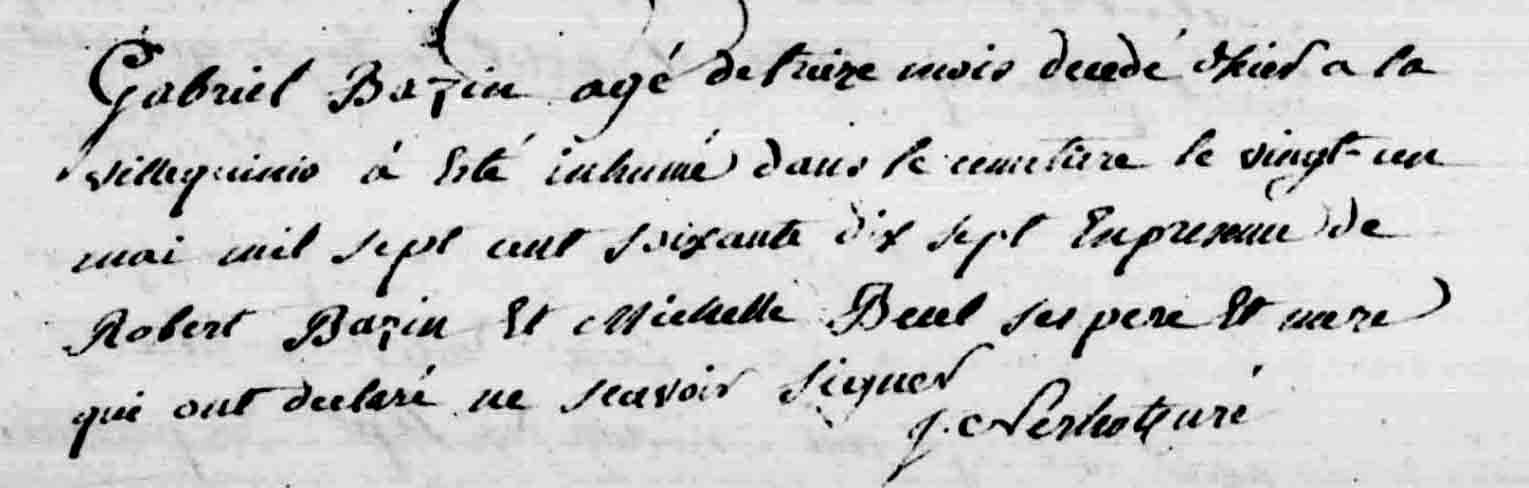 Gabriel Bazin agé de treize mois decedé d'hier a la
villequinio á Esté inhumé dans le cimetiere le vingt-un
mai mil sept cent soixante dix sept En presence de
Robert Bazin Et Michelle Beuel ses pere Et mere
qui ont declaré ne scavoir signer